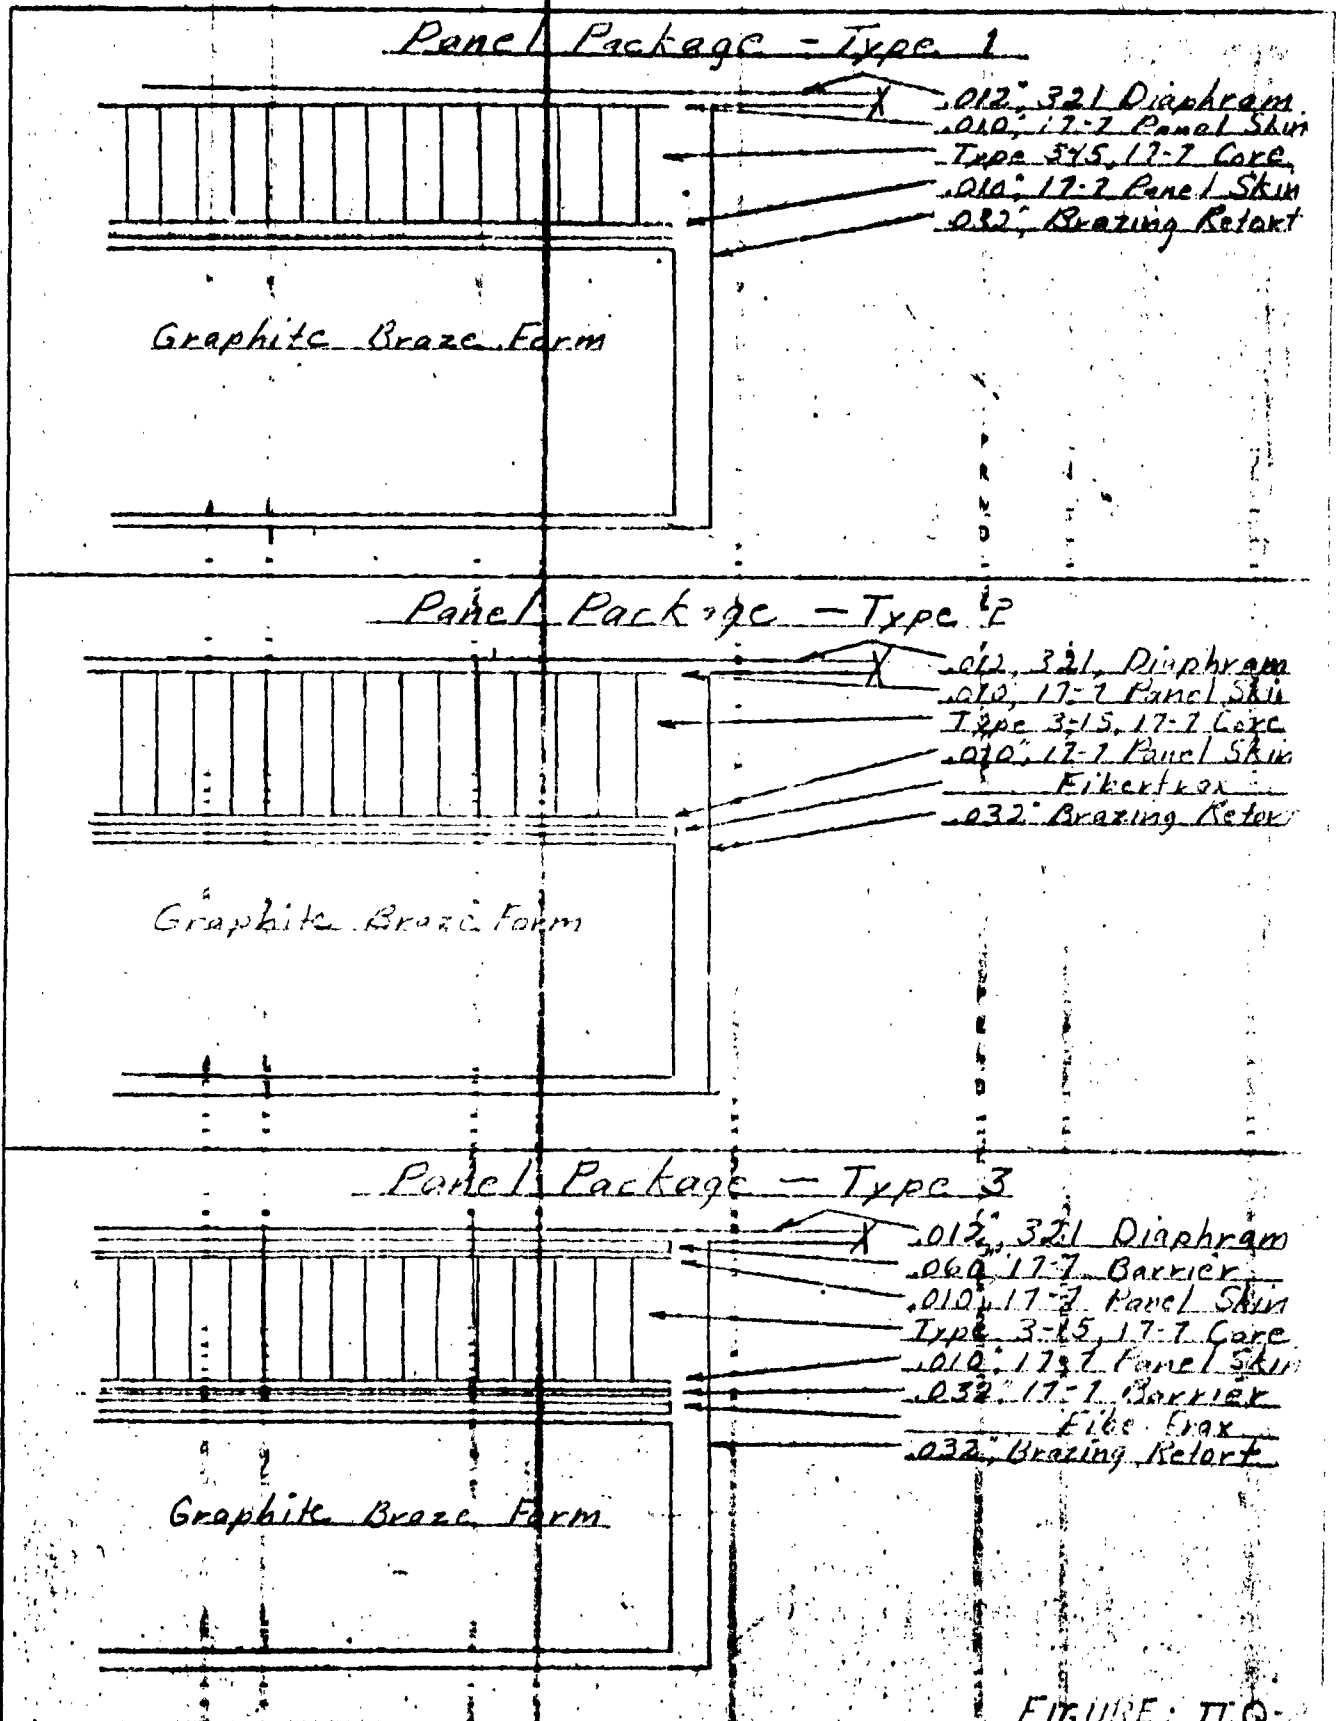 Panel Package - Type 1
.012", 321 Diaphram
.010", 17-7 Panel Skin
Type 17-7 Core
.010", 17-7 Panel Skin
.032", Brazing Retort
Graphite Braze Form
Panel Package - Type 2
.012, 321, Diaphram
.010, 17-7 Panel Skin
Type 3-15, 17-7 Core
.010", 17-7 Panel Skin
.032" Brazing Retor
Graphite Braze Form
Panel Package - Type 3
.012", 321 Diaphram
.060" 17-7 Barrier
.010", 17-7 Panel Skin
Type 3-15, 17-7 Core
.010", 17-7 Panel Skin
.032", 17-7 Barrier
Frax
.032", Brazing Retort
Graphite Braze Form
FIGURE: